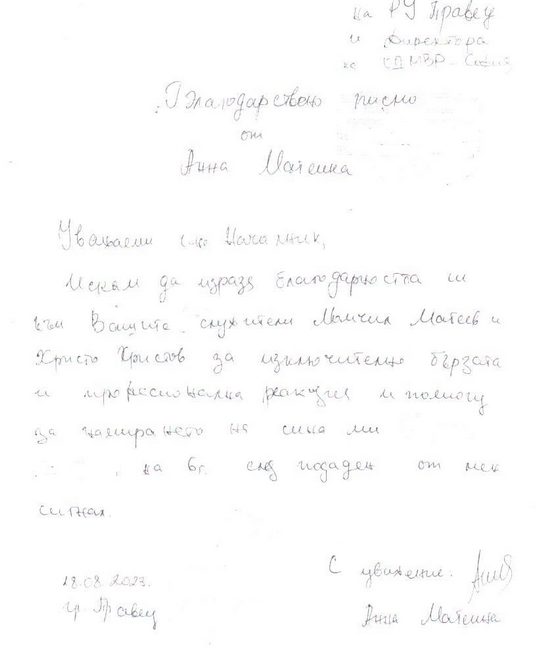 на РУ Правец
и Директора
на СДМВР - София
Благодарствено писмо
от
Анна Матеина
Уважаеми г-не Началник,
Искам да изразя благодарността си
към Вашите служители Момчил Матеев и
Христо Христов за изключително бързата
и професионална реакция и помощ
за намирането на сина ми
на 6г. след подаден от мен
сигнал.
С уважение:
18.08.2023г.
гр. Правец
Анна Матеина